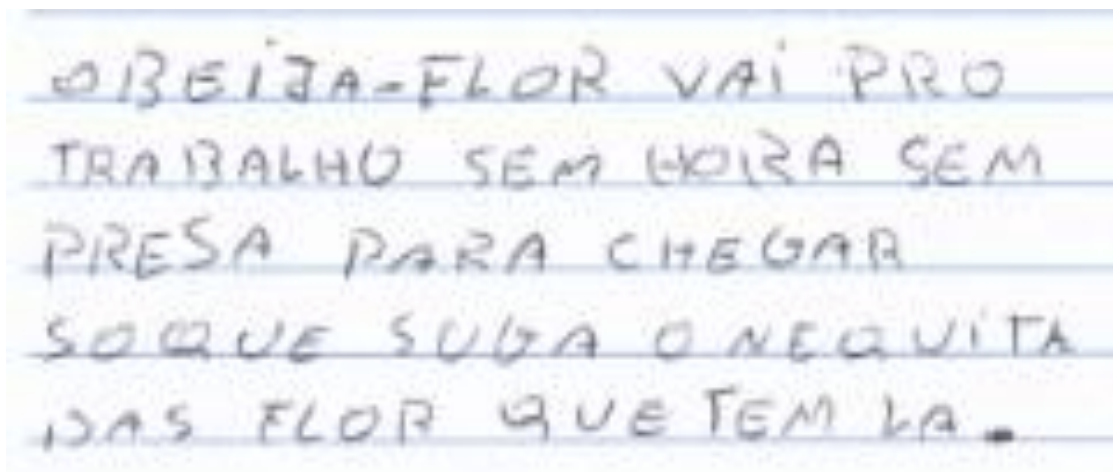 OBEIJA-FLOR VAI PRO
TRABALHO SEM HORA SEM
PRESA PARA CHEGAR
SOQUE SUGA O NEQUITA
DAS FLOR QUE TEM LA.